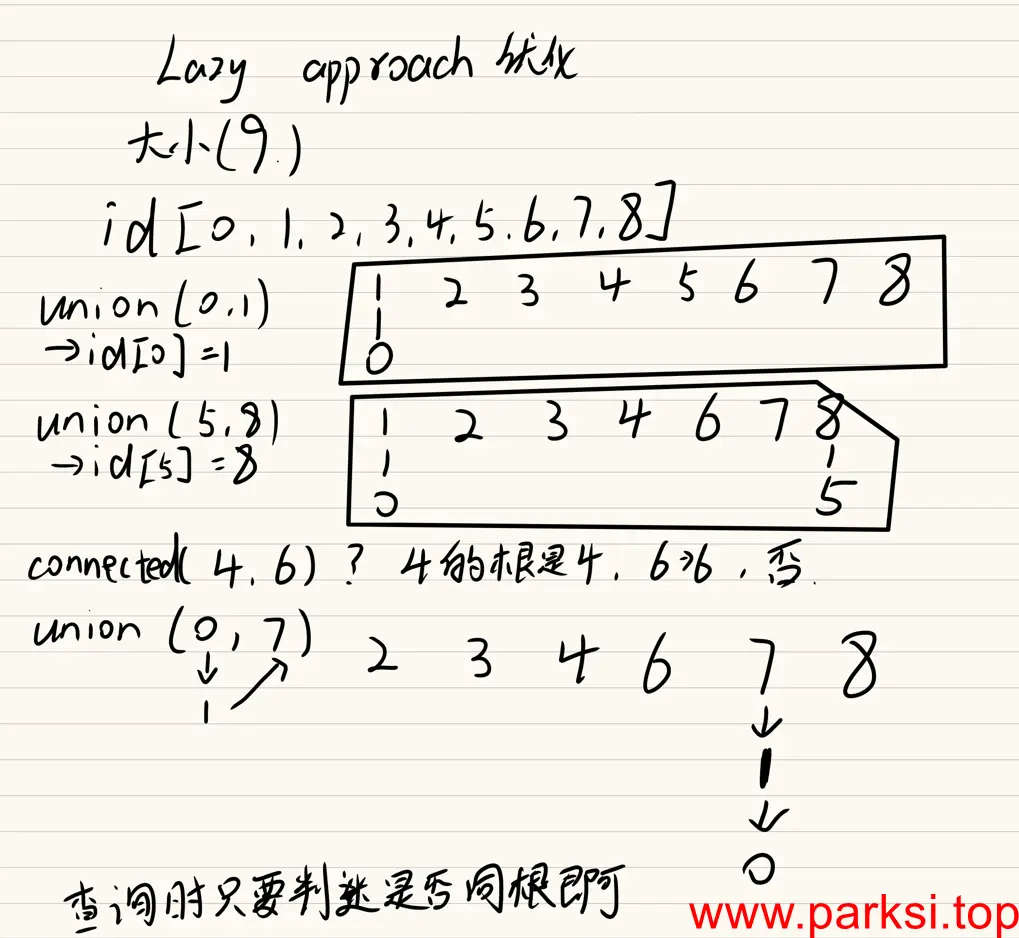 Lazy approach 优化
大小(9.)
id[0,1,2,3,4,5,6,7,8]
union(0,1)
→id[0]=1
1 2 3 4 5 6 7 8
0
union(5,8)
→id[5]=8
1 2 3 4 6 7 8
0 5
connected(4,6)? 4的根是4,6→6,否.
union(0,7)
↓ ↗
1
2 3 4 6 7 8
↓
1
↓
0
查询时只要判断是否同根即可
www.parksi.top